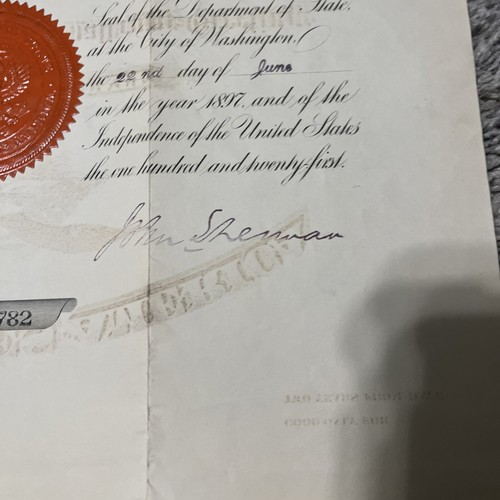 Seal of the Department of State,
at the City of Washington,
the 22nd day of June
in the year 1897, and of the
Independence of the United States
the one hundred and twenty-first.
John Sherman
782